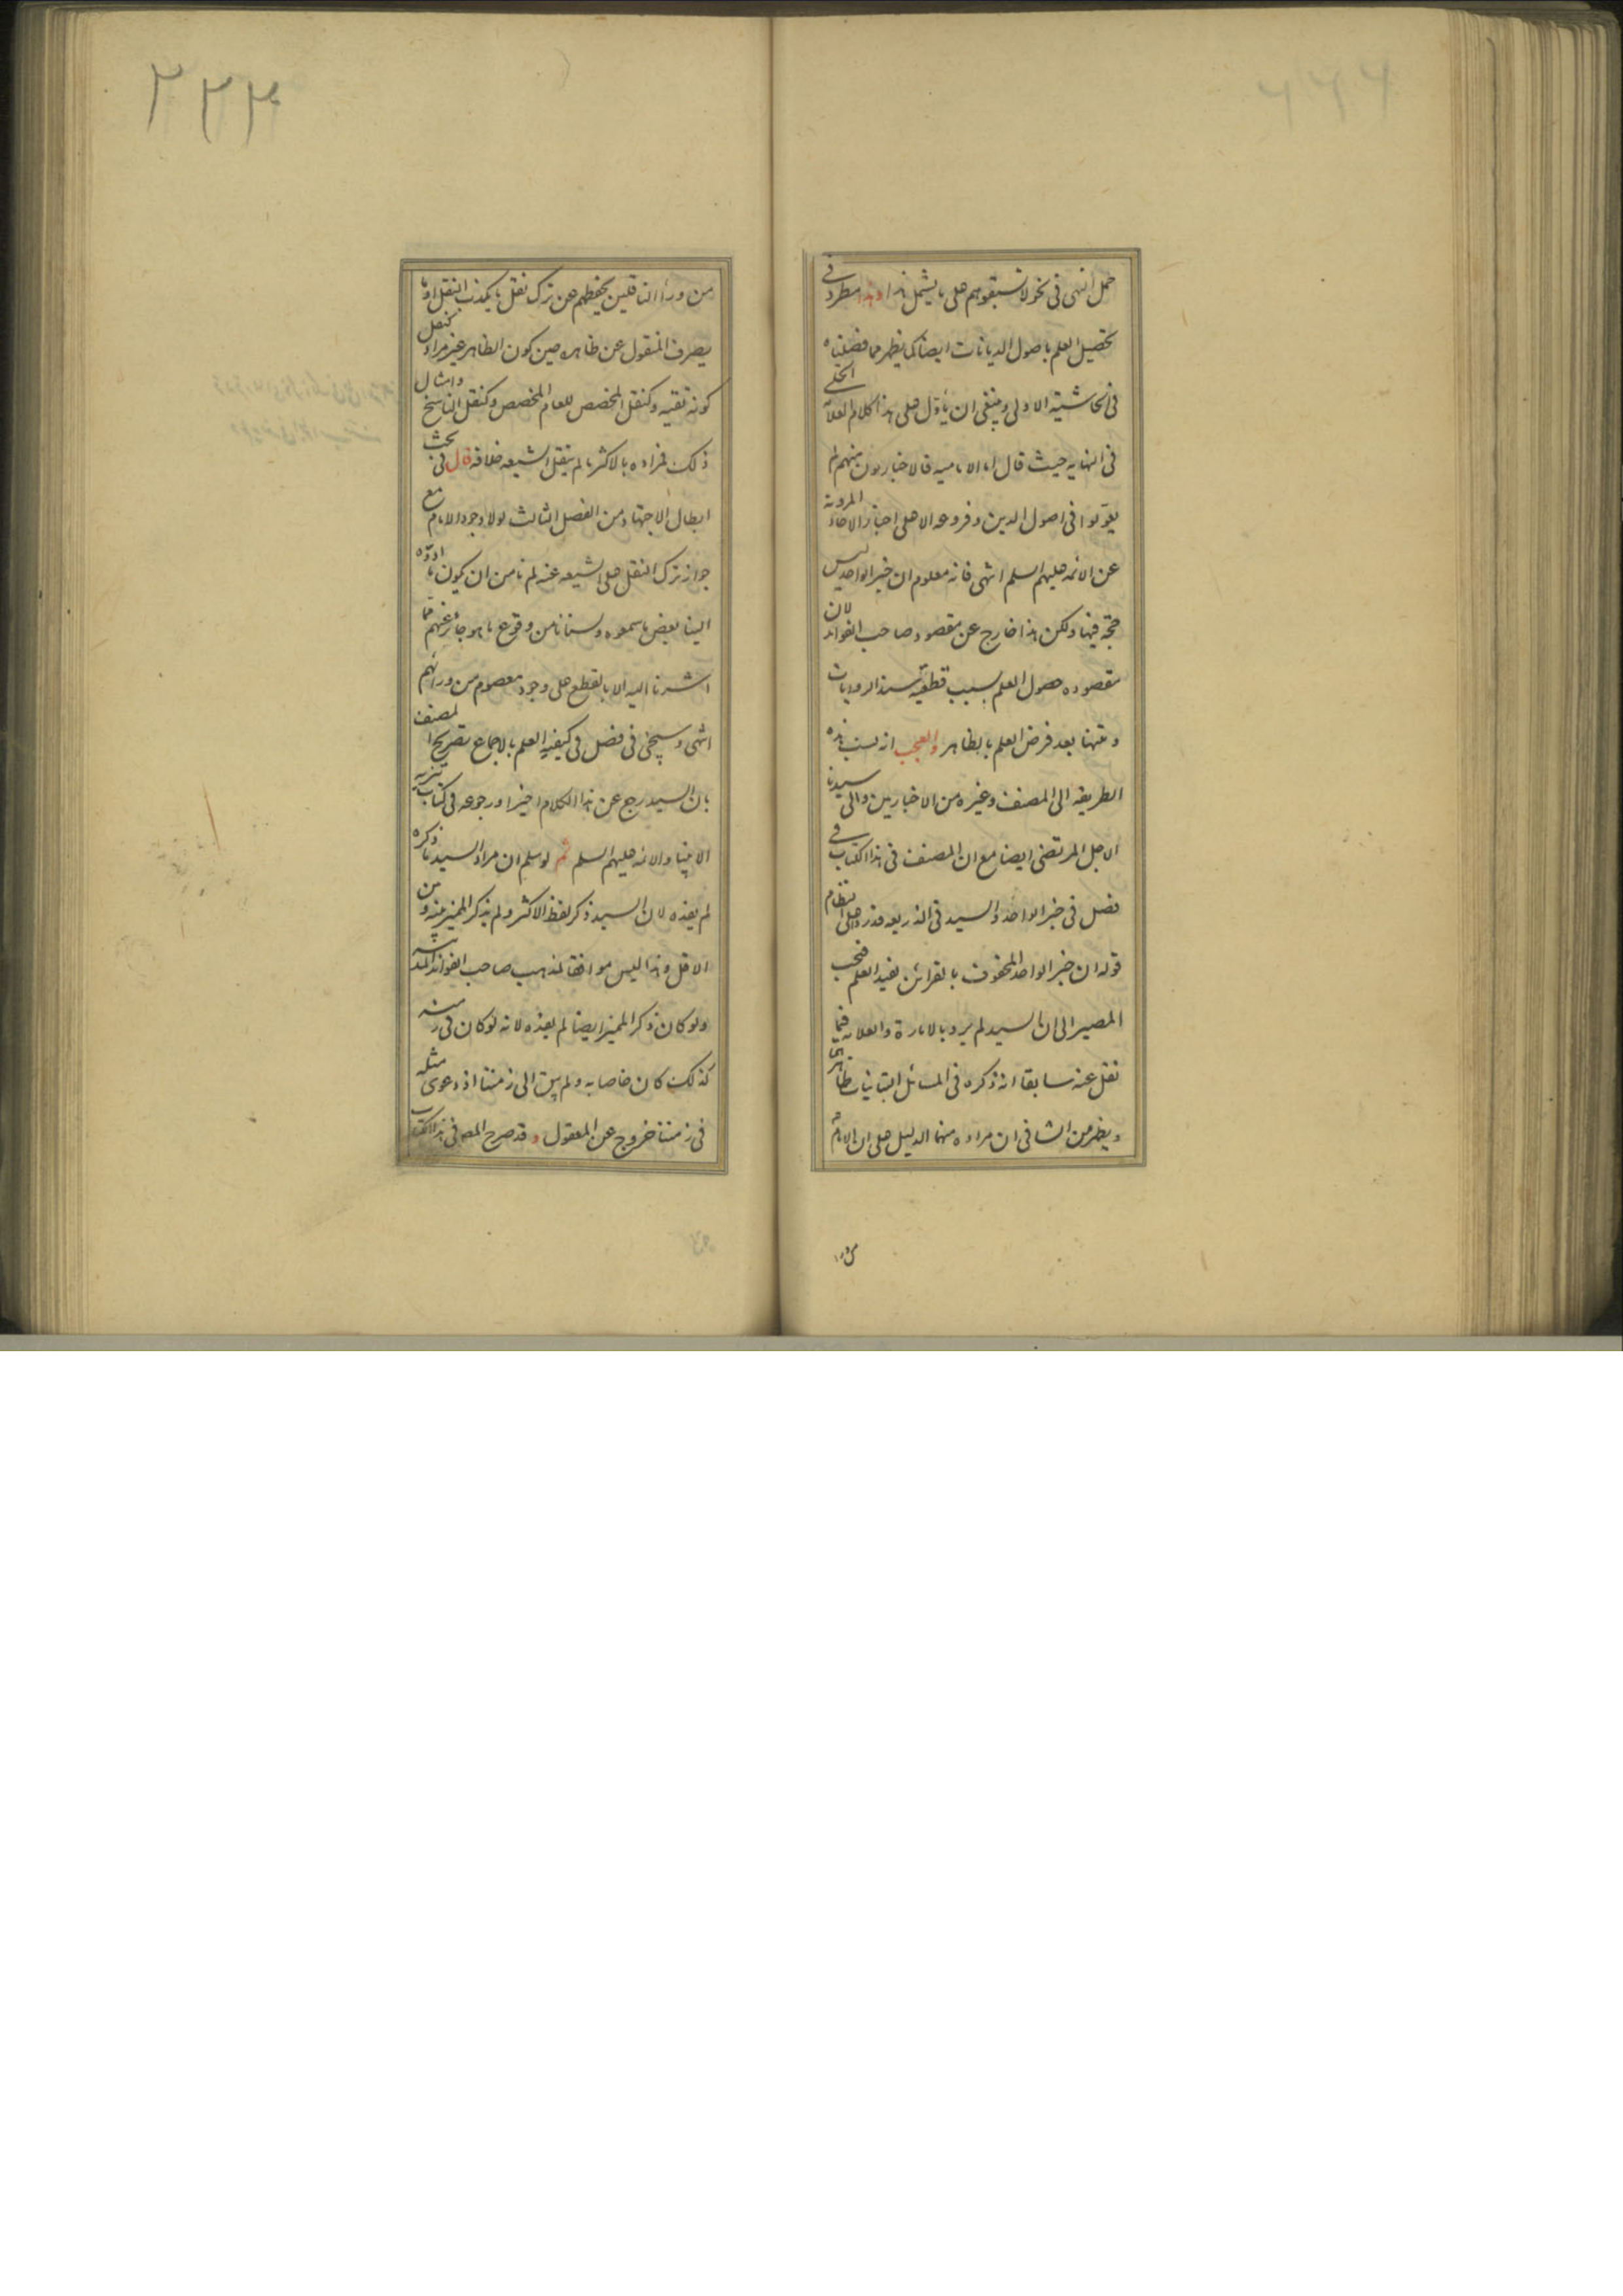 حمل النهى فى نحو لا تسبقوهم على ما يشمل هذا وهذا مطرد فى
تحصيل العلم باصول الديانات ايضا كما يظهر مما فصلناه
فى الحاشية الاولى وينبغى ان يأوّل على هذا كلام العلامة الحلى
فى النهاية حيث قال اما الامامية فالاخباريون منهم لم
يعوّلوا فى اصول الدين وفروعه الا على اخبار الاحاد المروية
عن الائمة عليهم السلم انتهى فانه معلوم ان خبر الواحد ليس
حجّة فيها ولكن هذا خارج عن مقصود صاحب الفوائد لان
مقصوده حصول العلم بسبب قطعية سند الروايات
ومتنها بعد فرض العلم بالظاهر والعجب انه نسب هذه
الطريقة الى المصنف وغيره من الاخباريين والى سيدنا
الاجل المرتضى ايضا مع ان المصنف فى هذا الكتاب فى
فصل فى خبر الواحد والسيد فى الذريعة قد ردا على النظام
قوله ان خبر الواحد المحفوف بالقرائن يفيد العلم فيجب
المصير الى ان السيد لم يرد بالامارة والعلامة فيما
نقل عنه سابقا انه ذكره فى المسائل التبانيات ظاهرهما
ويظهر من الشافى ان مراده منهما الدليل على ان الامام
من وراء
٢٢٣
من وراء الناقلين يحفظهم عن ترك نقل ما يكذب النقل او ما
يصرف المنقول عن ظاهره حين كون الظاهر غير مراد كنقل
كونه تقية وكنقل المخصص للعام المخصص وكنقل الناسخ وامثال
ذلك فمراده بالاكثر ما لم ينقل الشيعة خلافه قال فى بحث
ابطال الاجتهاد من الفصل الثالث لولا وجود الامام مع
جواز ترك النقل على الشيعة عنه لم نامن ان يكون ما ادوّه
الينا بعض ما سمعوه ولسنا نامن وقوع ما هو جائز عنهم مما
اشرنا اليه الا بالقطع على وجود معصوم من ورائهم
انتهى وسيجئ فى فصل فى كيفية العلم بالاجماع تصريح المصنف
بان السيد رجع عن هذا الكلام اخيرا ورجوعه فى كتاب تنزيه
الانبياء والائمة عليهم السلم ثم لو سلم ان مراد السيد ما ذكره
لم يفده لان السيد ذكر لفظ الاكثر ولم يذكر المميز بينه وبين
الاقل وهذا ليس موافقا لمذهب صاحب الفوائد المدنية
ولو كان ذكر المميز ايضا لم يفده لانه لو كان فى زمنه
كذلك كان خاصا به ولم يبق الى زمننا اذ دعوى مثله
فى زمننا خروج عن المعقول وقد صرح المصـ فى هذا الكتاب